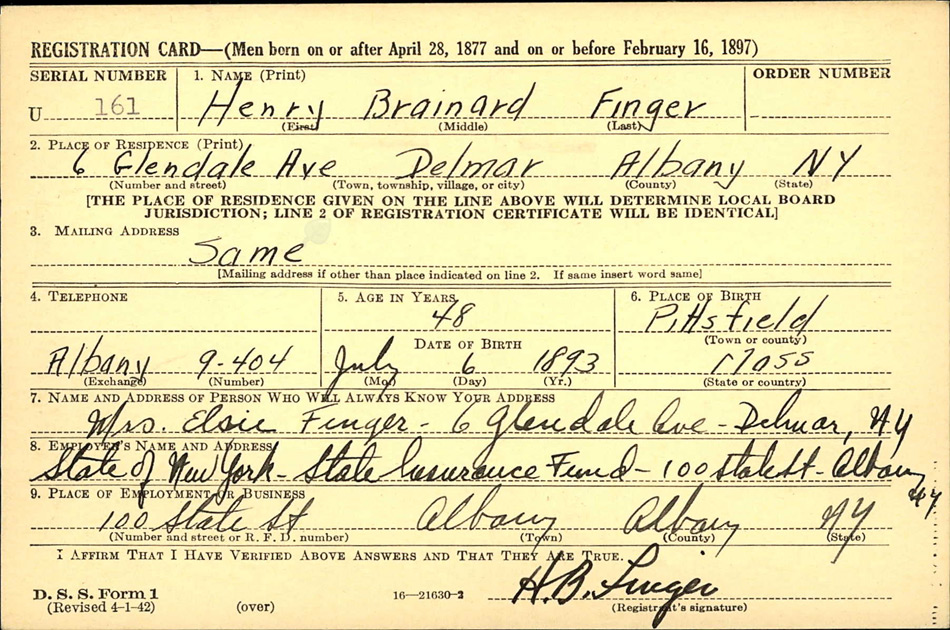 REGISTRATION CARD—(Men born on or after April 28, 1877 and on or before February 16, 1897)
SERIAL NUMBER 1. NAME (Print) ORDER NUMBER
U 161 Henry Brainard Finger
(First) (Middle) (Last)
2. PLACE OF RESIDENCE (Print)
6 Glendale Ave Delmar Albany NY
(Number and street) (Town, township, village, or city) (County) (State)
[THE PLACE OF RESIDENCE GIVEN ON THE LINE ABOVE WILL DETERMINE LOCAL BOARD
JURISDICTION; LINE 2 OF REGISTRATION CERTIFICATE WILL BE IDENTICAL]
3. MAILING ADDRESS
Same
[Mailing address if other than place indicated on line 2. If same insert word same]
4. TELEPHONE 5. AGE IN YEARS 6. PLACE OF BIRTH
48 Pittsfield
(Town or county)
DATE OF BIRTH
Albany 9-404 July 6 1893 Mass
(Exchange) (Number) (Mo.) (Day) (Yr.) (State or country)
7. NAME AND ADDRESS OF PERSON WHO WILL ALWAYS KNOW YOUR ADDRESS
Mrs. Elsie Finger - 6 Glendale Ave - Delmar, NY
8. EMPLOYER'S NAME AND ADDRESS
State of New York - State Insurance Fund - 100 State St - Albany
NY
9. PLACE OF EMPLOYMENT OR BUSINESS
100 State St Albany Albany NY
(Number and street or R. F. D. number) (Town) (County) (State)
I AFFIRM THAT I HAVE VERIFIED ABOVE ANSWERS AND THAT THEY ARE TRUE.
H. B. Finger
D. S. S. Form 1
(Revised 4-1-42) (over) 16—21630-2 (Registrant's signature)